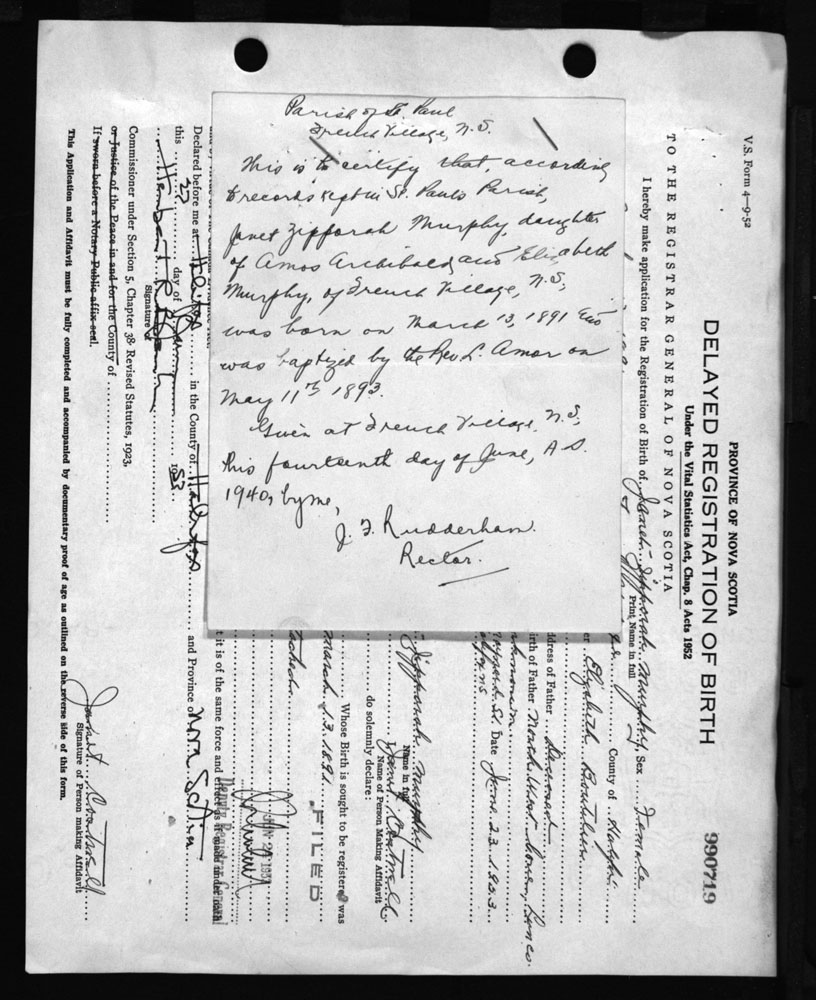 Parish of St. Paul
French Village, N.S.
This is to certify that, according
to records kept in St. Pauls Parish,
Janet Zipporah Murphy, daughter
of Amos Archibald and Elizabeth
Murphy, of French Village, N.S,
was born on March 13, 1891 and
was baptized by the Rev L. Amor on
May 11th 1893.
Given at French Village, N.S,
this fourteenth day of June, A.D.
1940, by me,
J. F. Rudderham
Rector.
V.S. Form 4—9-52
PROVINCE OF NOVA SCOTIA
DELAYED REGISTRATION OF BIRTH
990719
Under the Vital Statistics Act, Chap. 8 Acts 1952
TO THE REGISTRAR GENERAL OF NOVA SCOTIA
I hereby make application for the Registration of Birth of Janet Zipporah Murphy Sex Female
Print Name in full
County of Halifax
Elizabeth Boutilier
ddress of Father Deceased
irth of Father North West
Date June 23 1953
Zipporah Murphy
Name in full
I, Janet
Name of Person Making Affidavit
do solemnly declare:
Whose Birth is sought to be registered was
March 13, 1891
FILED
tached
t it is of the same force and effect as if made under oath
Deputy Registrar General
Declared before me at Halifax in the County of Halifax and Province of Nova Scotia
this 23 day of June 1953
Signature of
Commissioner under Section 5, Chapter 38 Revised Statutes, 1923,
or Justice of the Peace in and for the County of
If sworn before a Notary Public affix seal.
Janet
Signature of Person making Affidavit
This Application and Affidavit must be fully completed and accompanied by documentary proof of age as outlined on the reverse side of this form.